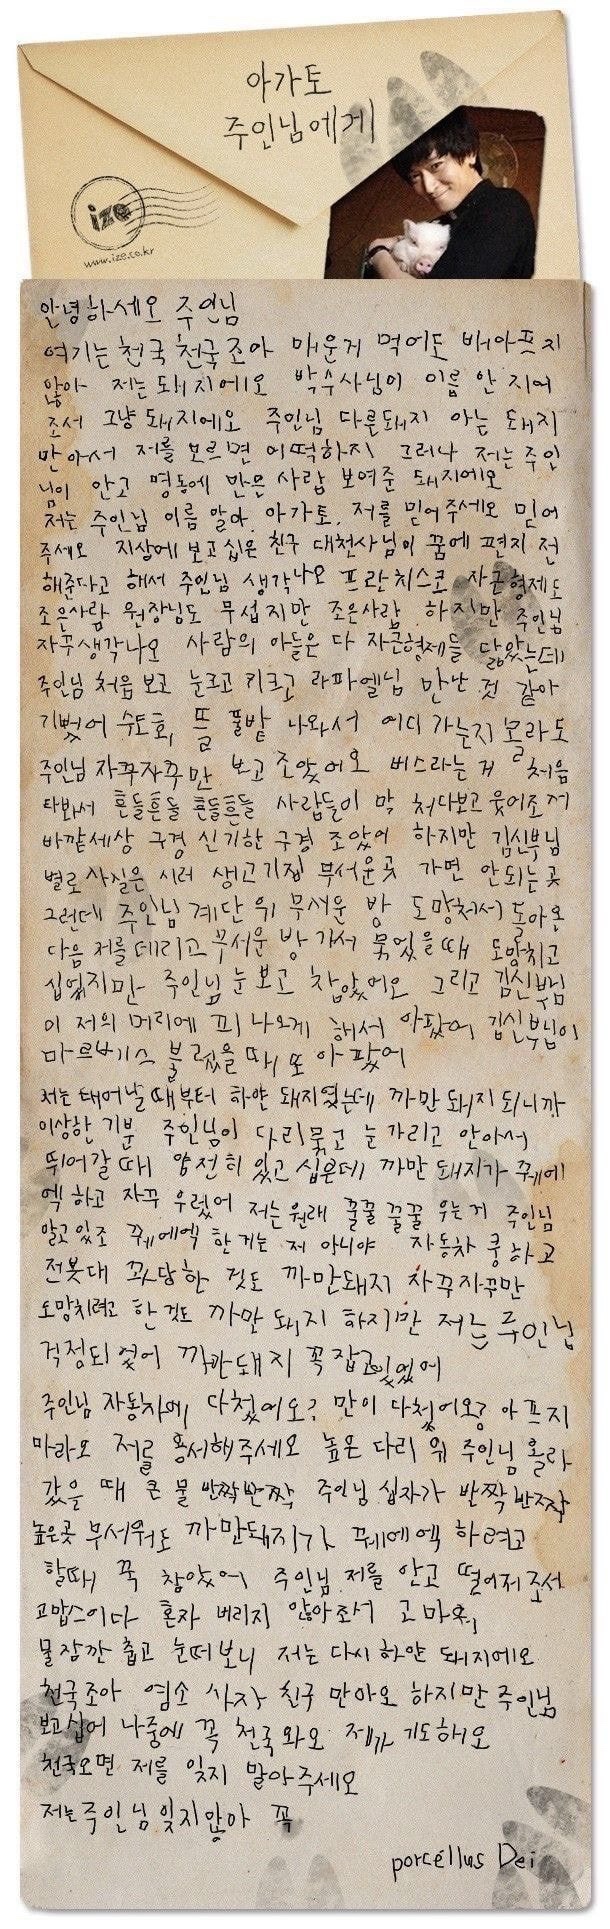 아가토
주인님에게
ize
www.ize.co.kr
안녕하세오 주인님
여기는 천국 천국조아 매운거 먹어도 배아프지
않아 저는 돼지에오 박수사님이 이름 안 지어
조서 그냥 돼지에오 주인님 다른돼지 아는 돼지
만아서 저를 모르면 어떡하지 그러나 저는 주인
님이 안고 명동에 만은 사람 보여준 돼지에오
저는 주인님 이름 알아. 아가토. 저를 믿어주세오 믿어
주세오 지상에 보고십은 친구 대천사님이 꿈에 편지 전
해준다고 해서 주인님 생각나오 프란치스코 자근형제도
조은사람 원장님도 무섭지만 조은사람 하지만 주인님
자꾸생각나오 사람의 아들은 다 자근형제들 닮았는데
주인님 처음 보고 눈크고 키크고 라파엘님 만난 것 같아
기뻤어 수도회, 뜰 풀밭 나와서 어디 가는지 몰라도
주인님 자꾸자꾸만 보고 조았어오 버스라는 거 처음
타봐서 흔들흔들 흔들흔들 사람들이 막 처다보고 웃어조거
바깥세상 구경 신기한 구경 조았어 하지만 김신부님
별로 사실은 시러 생고기집 무서운곳 가면 안되는곳
그런데 주인님 계단 위 무서운 방 도망처서 돌아온
다음 저를 데리고 무서운 방 가서 묶었을때 도망치고
십었지만 주인님 눈 보고 참았어오 그리고 김신부님
이 저의 머리에 피 나오게 해서 아팠어 김신부님이
마르베스 불렀을 때 또 아팠어
저는 태어날때부터 하얀 돼지였는데 까만 돼지 되니까
이상한 기분 주인님이 다리묶고 눈 가리고 안아서
뛰어갈 때 얌전히 있고 십은데 까만 돼지가 꿰에
엑 하고 자꾸 우렀어 저는 원래 꿀꿀 꿀꿀 우는거 주인님
알고있조 꿰에엑 한 거는 저 아니야 자동차 쿵 하고
전봇대 꽈당한 것도 까만돼지 자꾸자꾸만
도망치려고 한 것도 까만 돼지 하지만 저는 주인님
걱정되었어 까만돼지 꼭 잡고있었어
주인님 자동차에 다첬어오? 만이 다첬어오? 아프지
마라오 저를 용서해주세오 높은 다리 위 주인님 올라
갔을 때 큰 물 반짝반짝 주인님 십자가 반짝반짝
높은곳 무서워도 까만돼지가 꿰에에엑 하려고
할때 꾹 참았어 주인님 저를 안고 떨어저 조서
고맙스이다 혼자 버리지 않아조서 고마워
물 잠깐 춥고 눈떠보니 저는 다시 하얀 돼지에오
천국조아 염소 사자 친구 만아오 하지만 주인님
보고십어 나중에 꼭 천국 와오 제가 기도해오
천국오면 저를 잊지 말아주세오
저는 주인님 잊지않아 꼭
porcéllus Dei